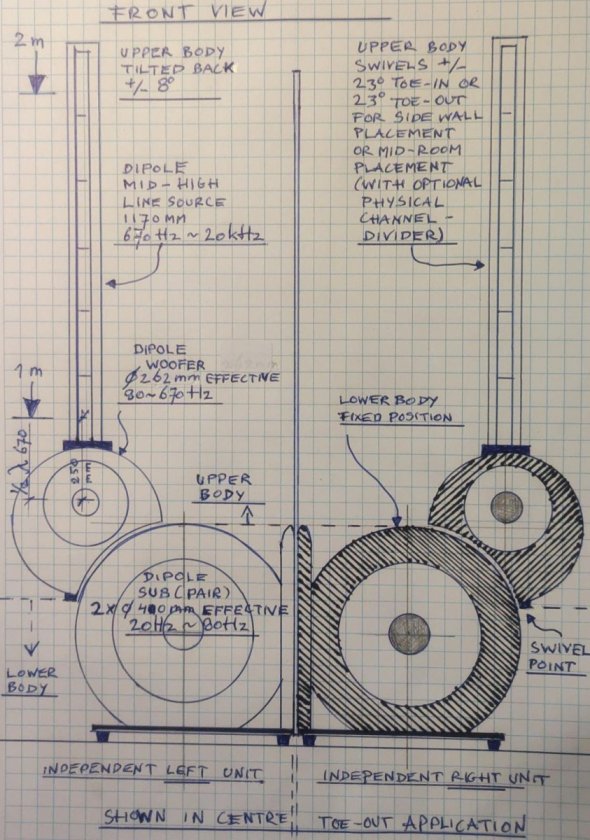 FRONT VIEW
2 m
UPPER BODY
TILTED BACK
+/- 8°
UPPER BODY
SWIVELS +/-
23° TOE-IN OR
23° TOE-OUT
FOR SIDE WALL
PLACEMENT
OR MID-ROOM
PLACEMENT
(WITH OPTIONAL
PHYSICAL
CHANNEL-
DIVIDER)
DIPOLE
MID-HIGH
LINE SOURCE
1170 MM
670 Hz ~ 20kHz
DIPOLE
WOOFER
Ø262mm EFFECTIVE
80~670Hz
1 m
LOWER BODY
FIXED POSITION
½ λ 670
250
UPPER
BODY
DIPOLE
SUB (PAIR)
2x Ø400mm EFFECTIVE
20Hz ~ 80Hz
LOWER
BODY
SWIVEL
POINT
INDEPENDENT LEFT UNIT
INDEPENDENT RIGHT UNIT
SHOWN IN CENTRE TOE-OUT APPLICATION